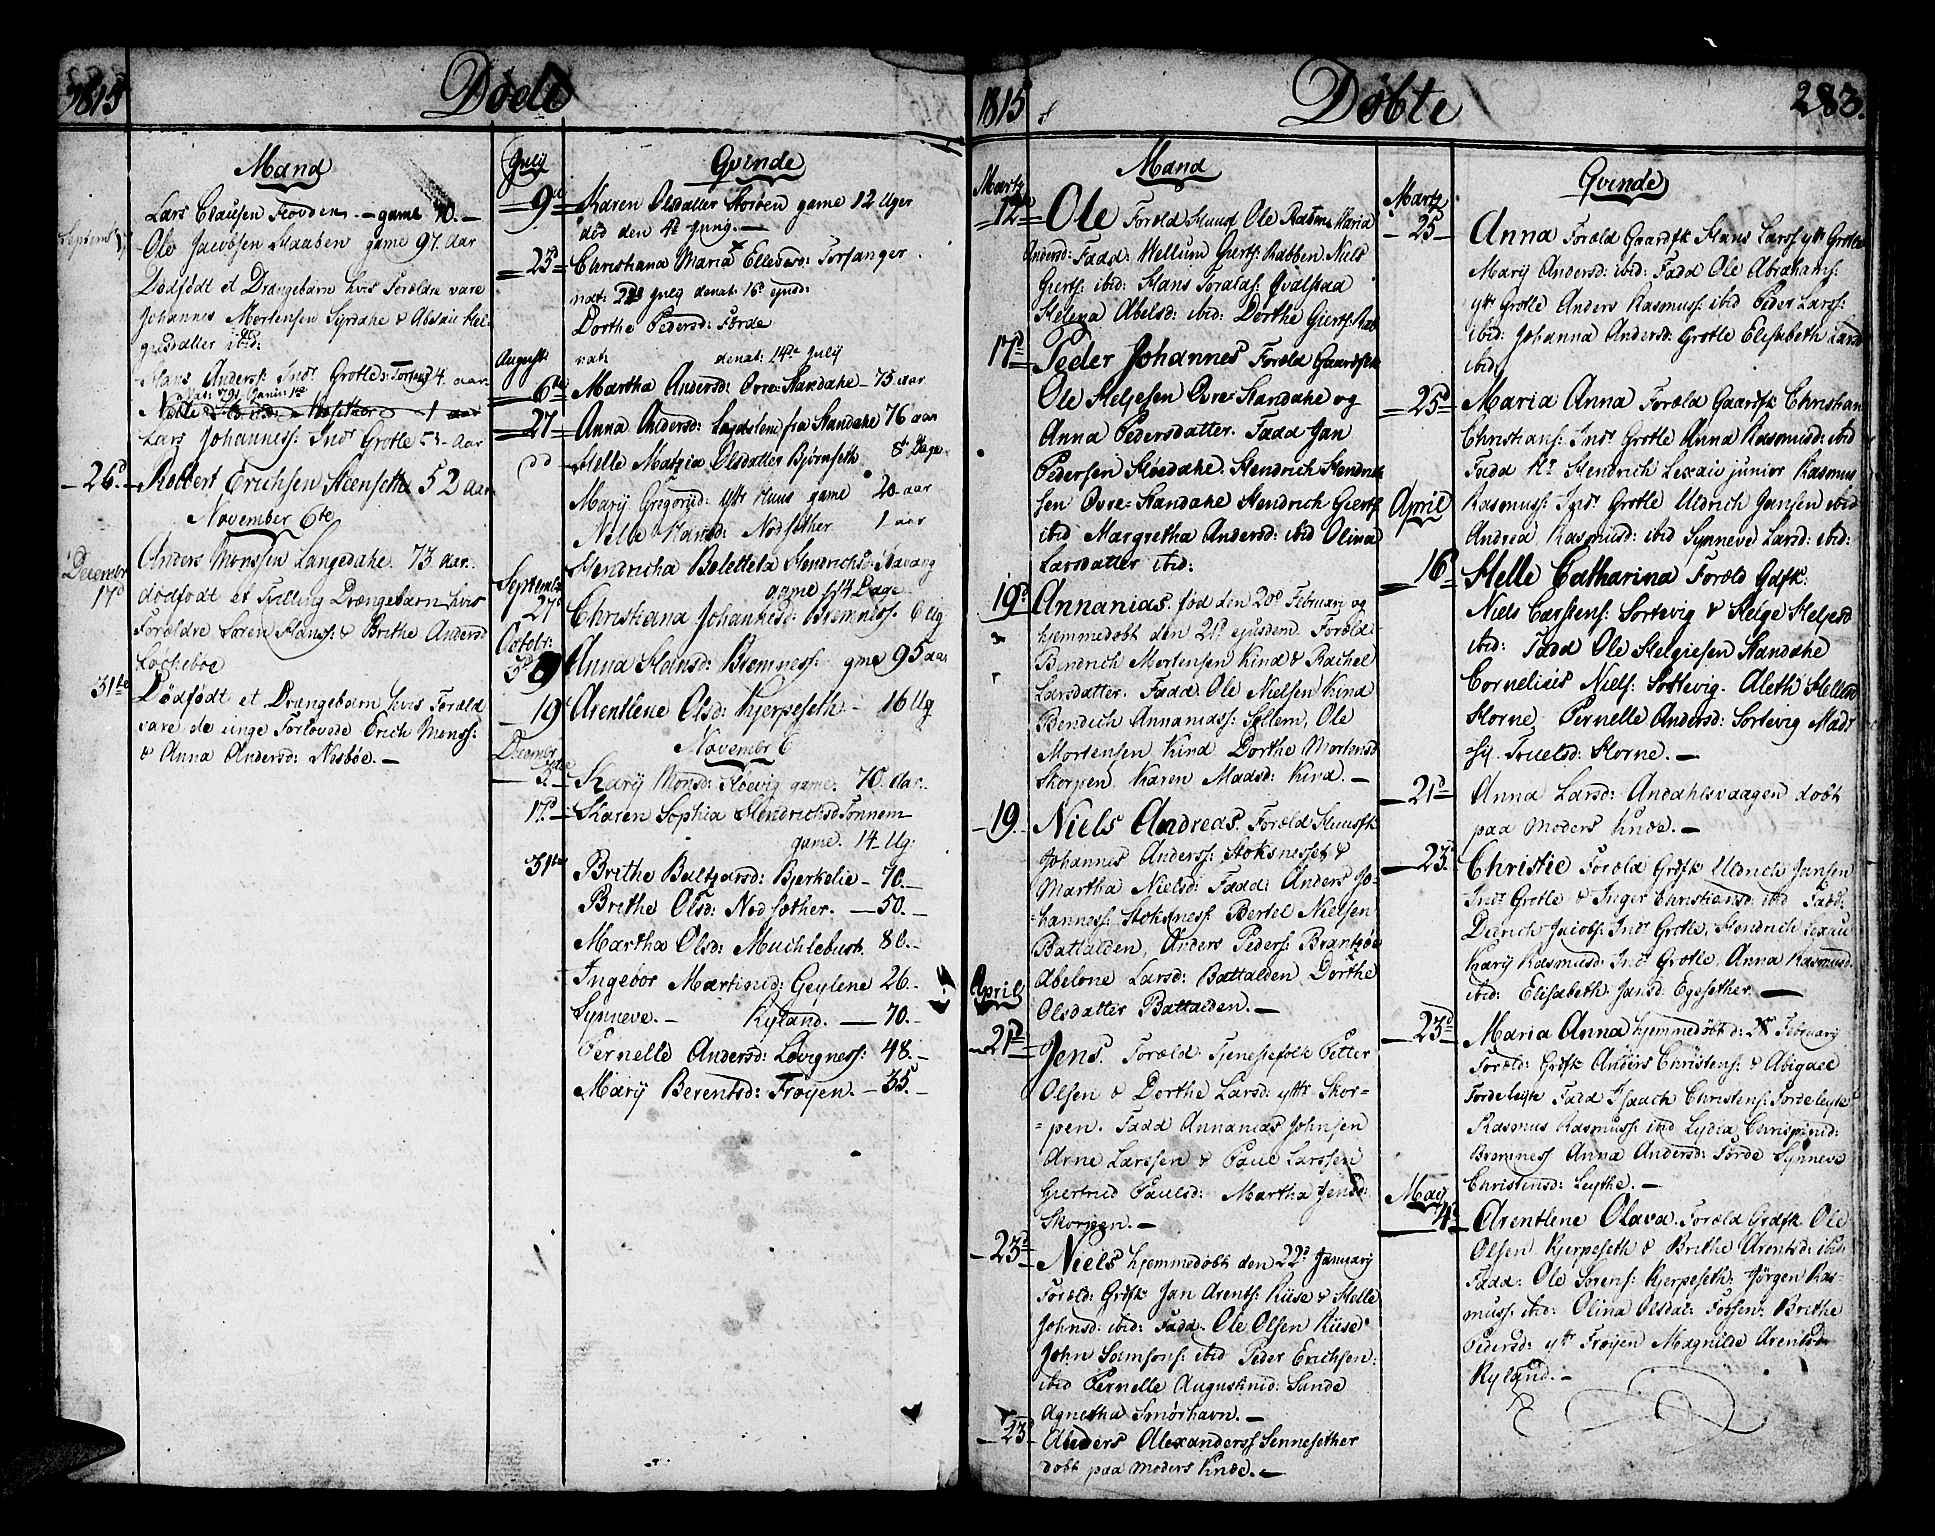 1815
Døde
Mand
Lars Clausen Flovden. - game 70. -
Septembr 17
Ole Jacobsen Staaben game 97. aar
Dødfødt et Drangebarn hvis Forældre vare
Johannes Mortensen Syrdahe & Abelaie Hel-
gesdatter ibid:
Hans Anders: Indr Grotle 4. aar.
Nelle 1 aar
Lars Johanness: Indr Grotle 53. Aar
26.d Robbert Erichsen Steensett 52 aar
November 6te
Anders Monssen Langedahe. 73 aar.
Decembr
17d dødfødt et Tvilling Drængebarn hvis
Forældre Søren Hanss: & Brithe Andersd
Locheboe
31te Dödfödt et Drangebarn hvis Foræld
vare de unge Forlovede Erich Monss:
& Anna Andersd: Nesbøe. -
July
Qvinde
9d Karen Olsdatter Storøen game 12 Uger
død den 4d Juny. -
25d Christiana Maria Ellevesd: Torfanger
nat: July denat: 16d ejusd:
Dorthe Pedersd: Førde
nat: denat: 14de July
August
6te Martha Andersd: Øvre-Standahe - 75 aar
27 Anna Andersd: Lægdslem fra Standahe 76 aar
Helle Matzia Olsdatter Bjørnseth 8 Dage
Marÿ Gregorid: ytr Huus game 20 aar
Nelle Hansd: Nodsæther 1 aar
Hendricha Bolettela Hendrichsd: Stavang
game 14 Dage
September
27d Christiana Johannesd: Bremness: 6 Ug
Octobr:
3d Anna Hansd: Bremness: gme 95 aar
19 Arentlene Olsd: Kjerpeseth - 16 Ug
November 6
Decembr
3die Karÿ Monsd: Høevig game. 70. Aar.
17.d Karen Sophia Hendrichsd Tonnem
game. 14 Ug:
31te Brithe Baltzarsd: Bjerkelie - 70. -
Brithe Olsd: Nodsæther. - 50. -
Martha Olsd: Muchlebust 80. -
Ingebor Martinid: Geylene 26. -
Synneve. - Ryland. - 70. -
Pernelle Andersd: Løvigness: 48. -
Marÿ Berentsd: Frøyen. - 35. -
1815
Døbte
283.
Mand
Martz
12te Ole Foræld Huusf Ole Rasms Maria
Andersd: Fadd: Wellum Giertss: Rabben Niels
Giertss: ibid: Hans Toralds: Qvalstaa
Helena Abelsd: ibid: Dorthe Giertss: Rab
17d Peder Johannes Foræld Gaardfk
Ole Helgesen Øvre-Standahe og
Anna Pedersdatter. Fadd Jan
Pedersen Høedahe. Hendrich Hendrik
sen Øvre-Standahe Hendrich Giertss
ibid Margretha Andersd: ibid Olina
Larsdatter ibid:
19d Annanias. fød den 20d Februarÿ og
hjemmedøbt den 21d ejusdem. Foræld
Bendrich Mortensen Kind & Rachel
Larsdatter. Fadd: Ole Nielsen Kind
Bendrich Annanias: Sollem, Ole
Mortensen Kind Dorthe Mortensd
Skorpen Karen Madsd: Kind. -
19. Niels Andreas. Foræld Huusfk
Johannes Anderss: Stoksnesset &
Martha Nielsd: Fadd: Anders Jo-
hanness: Stoksness: Bertel Nielsen
Battalden, Anders Peders: Brantzøe
Abelone Larsd: Battalden Dorthe
Olsdatter Battalden. -
April
21d Jens. Foræld: Tjenestefolk Petter
Olsen & Dorthe Larsd: yttr Skor-
pen. Fadd Annanias Johnsen
Arne Larssen & Paul Larssen
Giertrud Paulsd: Martha Jensd:
Skorpen. -
23d Niels hjemmedøbt den 22d Januarÿ
Foræld: Grdfk Jan Arents: Riise & Helle
Johnsd: ibid: Fadd. Ole Olsen Riise
John Samsons: ibid Peder Erichsen:
ibid Pernelle Augustinid: Sunde
Agnetha Smørhavn. -
23d Anders Alexanderss Sennesether
døbt paa Moders Kinde. -
Qvinde
Martz
25 Anna Foræld Gaardfk Hans Larss ytr Grotle
Marÿ Andersd: ibid: Fadd Ole Abrahams:
ytr Grotle Anders Rasmuss: ibid Peder Larss:
ibid: Johanna Andersd: Grotle Elisabeth Larsd
ibid.
25d Maria Anna Foræld Gaardfk Christian
Christians: Indr Grotle Anna Rasmusd: ibid
Fadd Hr Hendrich Lexaie junior Rasmus
April
Rasmuss: Indr Grotle Uldrich Jansen ibid
Andrea Rasmusd: ibid Synneve Larsd: ibid:
16 Helle Catharina Foræld Gdfk:
Niels Carstens: Sortevig & Helge Helgesd
ibid: Fadd Ole Helgiesen Standahe
Cornelius Niels: Sortevig. Aleth Hellesd
Horne Pernelle Andersd: Sortevig Madz
Truelsd: Horne. -
21d Anna Larsd: Andahlsvaagen døbt
paa Moders Kinde. -
23d Christie Foræld Grdfk Uldrich Jansen
Indr Grotle & Inger Christiansd: ibid Fadd:
Didrich Jacobs: Indr Grotle, Hendrich Lexau
Karÿ Rasmusd: Indr Grotle, Anna Rasmusd.
ibid: Elisabeth Jansd: Egesether. -
23d Maria Anna hjemmedøbt d: 28 Februarÿ
Foræld: Grdfk Anders Christens: & Abigael
Førdeleyte Fadd Isaach Christens: Førdeleyte
Rasmus Rasmuss: ibid Lydia Chrispinid:
Bremness Anna Andersd: Førde Synneve
Christensd: Leythe. -
May
4d Arentlene Olava. Foræld Grdfk Ole
Olsen Kjerpeseth & Brithe Arentsd: ibid:
Fadd: Ole Sørens: Kjerpeseth: Jørgen Ras-
muss: ibid: Olina Olsdat: Fossen: Brithe
Pedersd: ytr Frøyen Magnilde Arentsd
Ryland. -